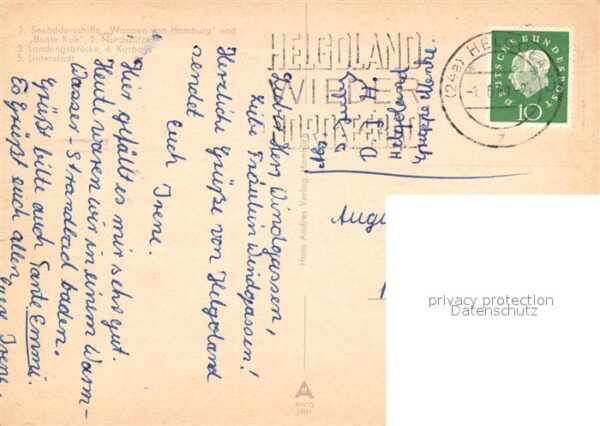 1. Seebäderschiffe "Wappen von Hamburg" und
"Bunte Kuh", 2. Nordspitze
3. Landungsbrücke, 4. Kurhaus
5. Unterstadt
HELGOLAND
WIEDER
(24a) HELGO
DEUTSCHE BUNDESPOST
10
Lieber Herr Windgassen,
liebe Fräulein Windgassen!
Herzliche Grüße von Helgoland
sendet
Euch Irene.
Hier gefällt es mir sehr gut.
Heute waren wir in einem Warm-
Wasser Strandbad baden.
Grüßt bitte auch Tante Emmi.
Es Grüßt euch allen
eure Irene.
Hans Andres Verlag, Hamburg
Helgoland
Augu
privacy protection
Datenschutz